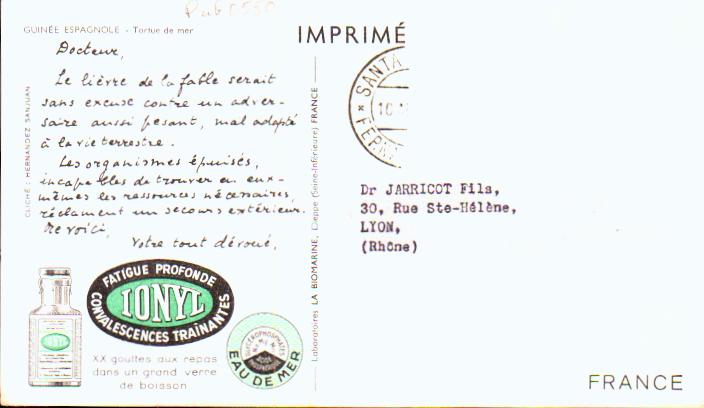 Pub 0550
GUINÉE ESPAGNOLE - Tortue de mer
IMPRIMÉ
Docteur,
Le lièvre de la fable serait
sans excuse contre un adver-
saire aussi pesant, mal adapté
à la vie terrestre.
Les organismes épuisés,
incapables de trouver en eux-
mêmes les ressources nécessaires,
réclament un secours extérieur.
Me voici,
Votre tout dévoué,
CLICHÉ : HERNANDEZ SANJUAN
Laboratoires LA BIOMARINE, Dieppe (Seine-Inférieure) FRANCE
SANTA
10
FERN
Dr JARRICOT Fils,
30, Rue Ste-Hélène,
LYON,
(Rhône)
FATIGUE PROFONDE
IONYL
CONVALESCENCES TRAÎNANTES
IONYL
XX gouttes aux repas
dans un grand verre
de boisson
GLYCÉROPHOSPHATES
EAU DE MER
FRANCE